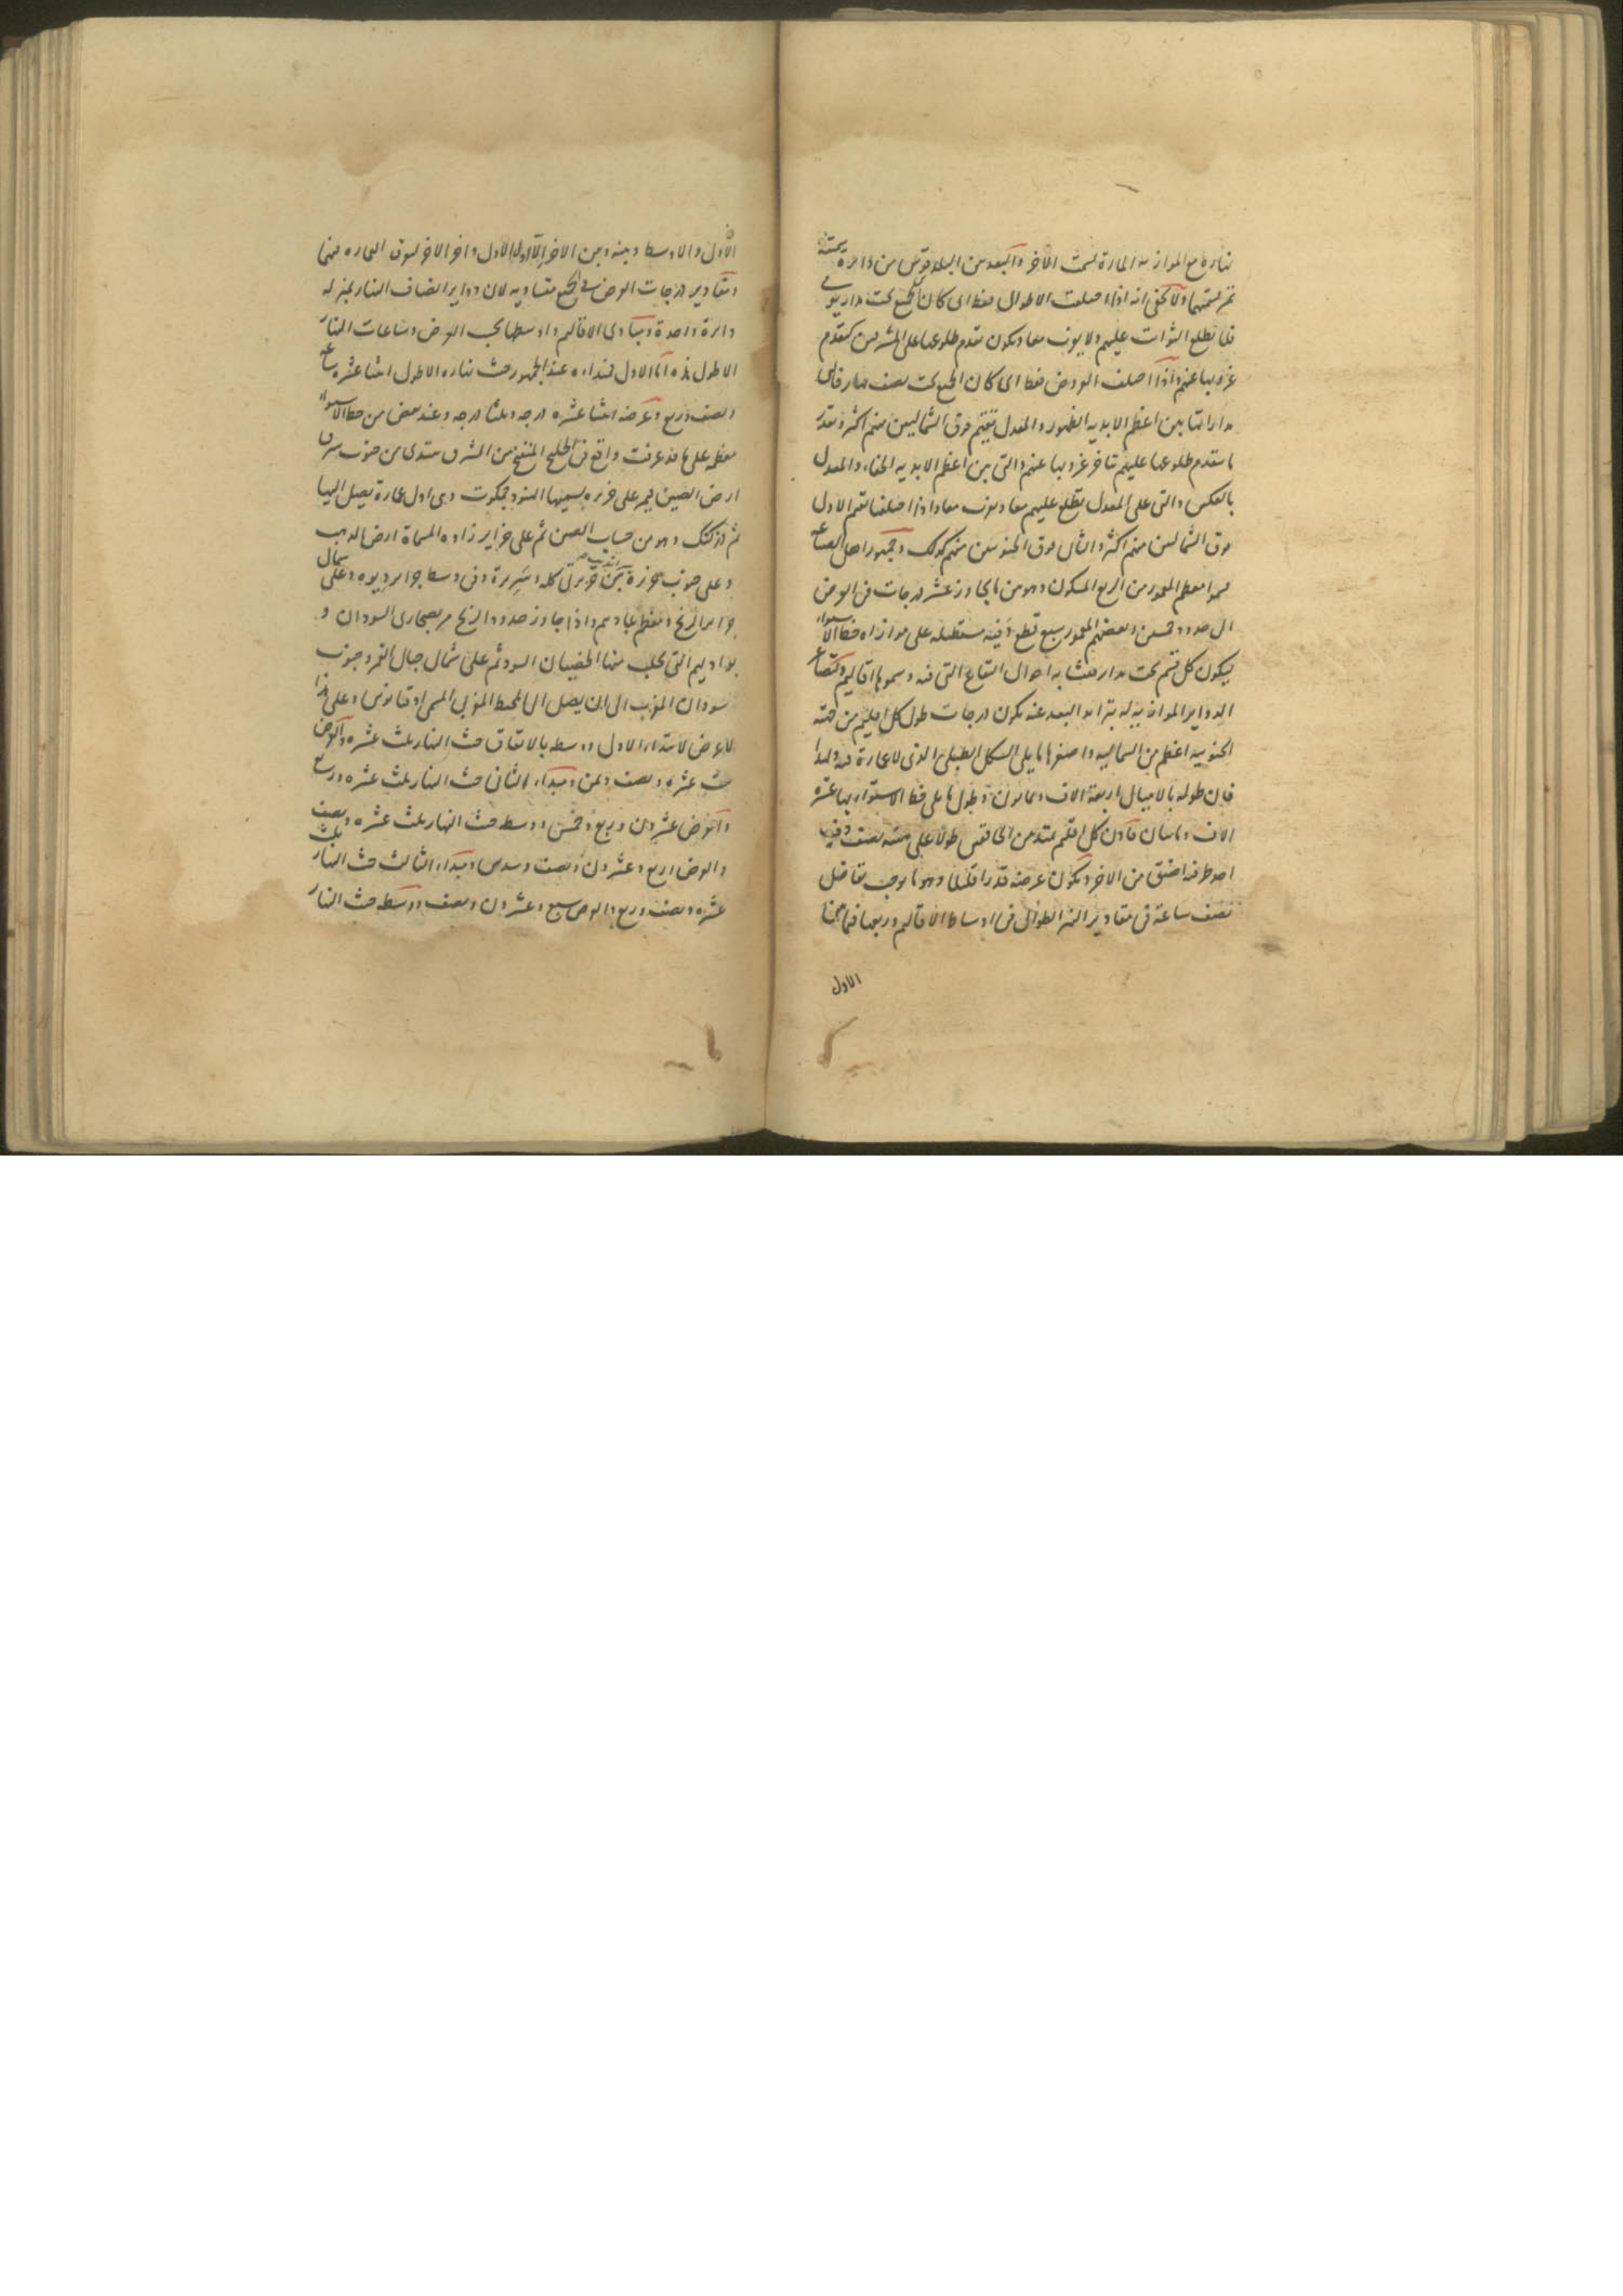 نهاره مع الموازنه المارة بسمت الآخر والبعد بين البلد قوس من دائرة سمتية
تمر بسمتيهما ولا يخفى انه اذا اختلفت الاطوال فقط اى كان الجميع تحت مدار يومى
فلا تطلع الثوابت عليهم ولا يغرب معا ويكون تقدم طلوعها على المشرقيين كتقدم
غروبها عنهم واذا اختلفت العروض فقط اى كان الجميع تحت نصف نهار فالتى
مداراتها بين اعظم الابدية الظهور والمعدل تقيم فوق الشماليين منهم اكثر وبقدر
ما يتقدم طلوعها عليهم يتاخر غروبها عنهم والتى بين اعظم الابدية الخفاء والمعدل
بالعكس والتى على المعدل تطلع عليهم معا ويغرب معا واذا اختلفتا تقيم الاول
فوق الشماليين منهم اكثر والثانى فوق الجنوبيين منهم كذلك وجمهور اهل الصناعة
قسموا معظم المعمور من الربع المسكون وهو من ما يجاوز عشر درجات فى العرض
الى حدود خمسين وبعضهم المعمور سبع قطع دفية مستطيلة على موازاة خط الاستواء
ليكون كل قسم تحت مدار متشابه احوال البقاع التى فيه وسموها اقاليم ولتصاغر
الدواير الموازية له بتزايد البعد عنه يكون درجات طول كل اقليم من جهته
الجنوبية اعظم من الشمالية واصغرها ما يلى الشكل الطبلى الذى لا عمارة فيه ولهذا
فان طوله بالاميال اربعة الاف وثمانون وطول ما يلى خط الاستواء بها عشرة
الاف ومائتان فاذن كل اقليم يمتد من الخافقين طولا على هيئة نصف دفية
احد طرفيه اضيق من الآخر ويكون عرضه قدرا قليلا وهو ما يوجب تفاضل
نصف ساعة فى مقادير النهر الطوال فى اوساط الاقاليم وربعها فيما بينها
الاول
الاول والاوسط وبينه وبين الآخر الا اول الاول واخر الاخر لسوق العمارة فيهما
ومقادير درجات العرض فى الجميع متساوية لان دواير انصاف النهار بمنزلة
دائرة واحدة ومبادى الاقاليم واوسطها بحسب العرض وساعات النهار
الاطول هذه اما الاول فمبداءه عند الجمهور حيث نهاره الاطول اثنا عشرة ساعة
ونصف وربع وعرضه اثنتا عشرة درجة وثلثا درجة وعند بعض من خط الاستواء
معظمه على ما قد عرفت واقع فى الخليج المنفتح من المشرق مبتدى من جنوب شرق
ارض الصين فيمر على جزيرة يسميها الهنود جمكوت وهى اول عمارة يصل اليها
ثم دزكنك وهو من حساب الصين ثم على جزاير زاده المسماة ارض الذهب
وعلى جنوب جزيرة سرنديب بين جزيرتى كله وسريرة وفى وسط جزاير ديوه وعلى شمال
جزاير الزنج ومعظم عبادهم واذا جاوز حدود الزنج مر بصحارى السودان و
بواديهم التى يجلب منها الخصيان السود ثم على شمال جبال القمر وجنوب
سودان المغرب الى ان يصل الى المحيط الغربى المسمى اوقيانوس وعلى هذا
لا عرض لابتداء الاول ووسطه بالاتفاق حيث النهار ثلث عشرة والعرض
ست عشرة ونصف وثمن ومبداء الثانى حيث النهار ثلث عشرة وربع
والعرض عشرون وربع وخمس ووسطه حيث النهار ثلث عشرة ونصف
والعرض اربع وعشرون ونصف وسدس ومبداء الثالث حيث النهار ثلث
عشرة ونصف وربع والعرض سبع وعشرون ونصف ووسطه حيث النهار